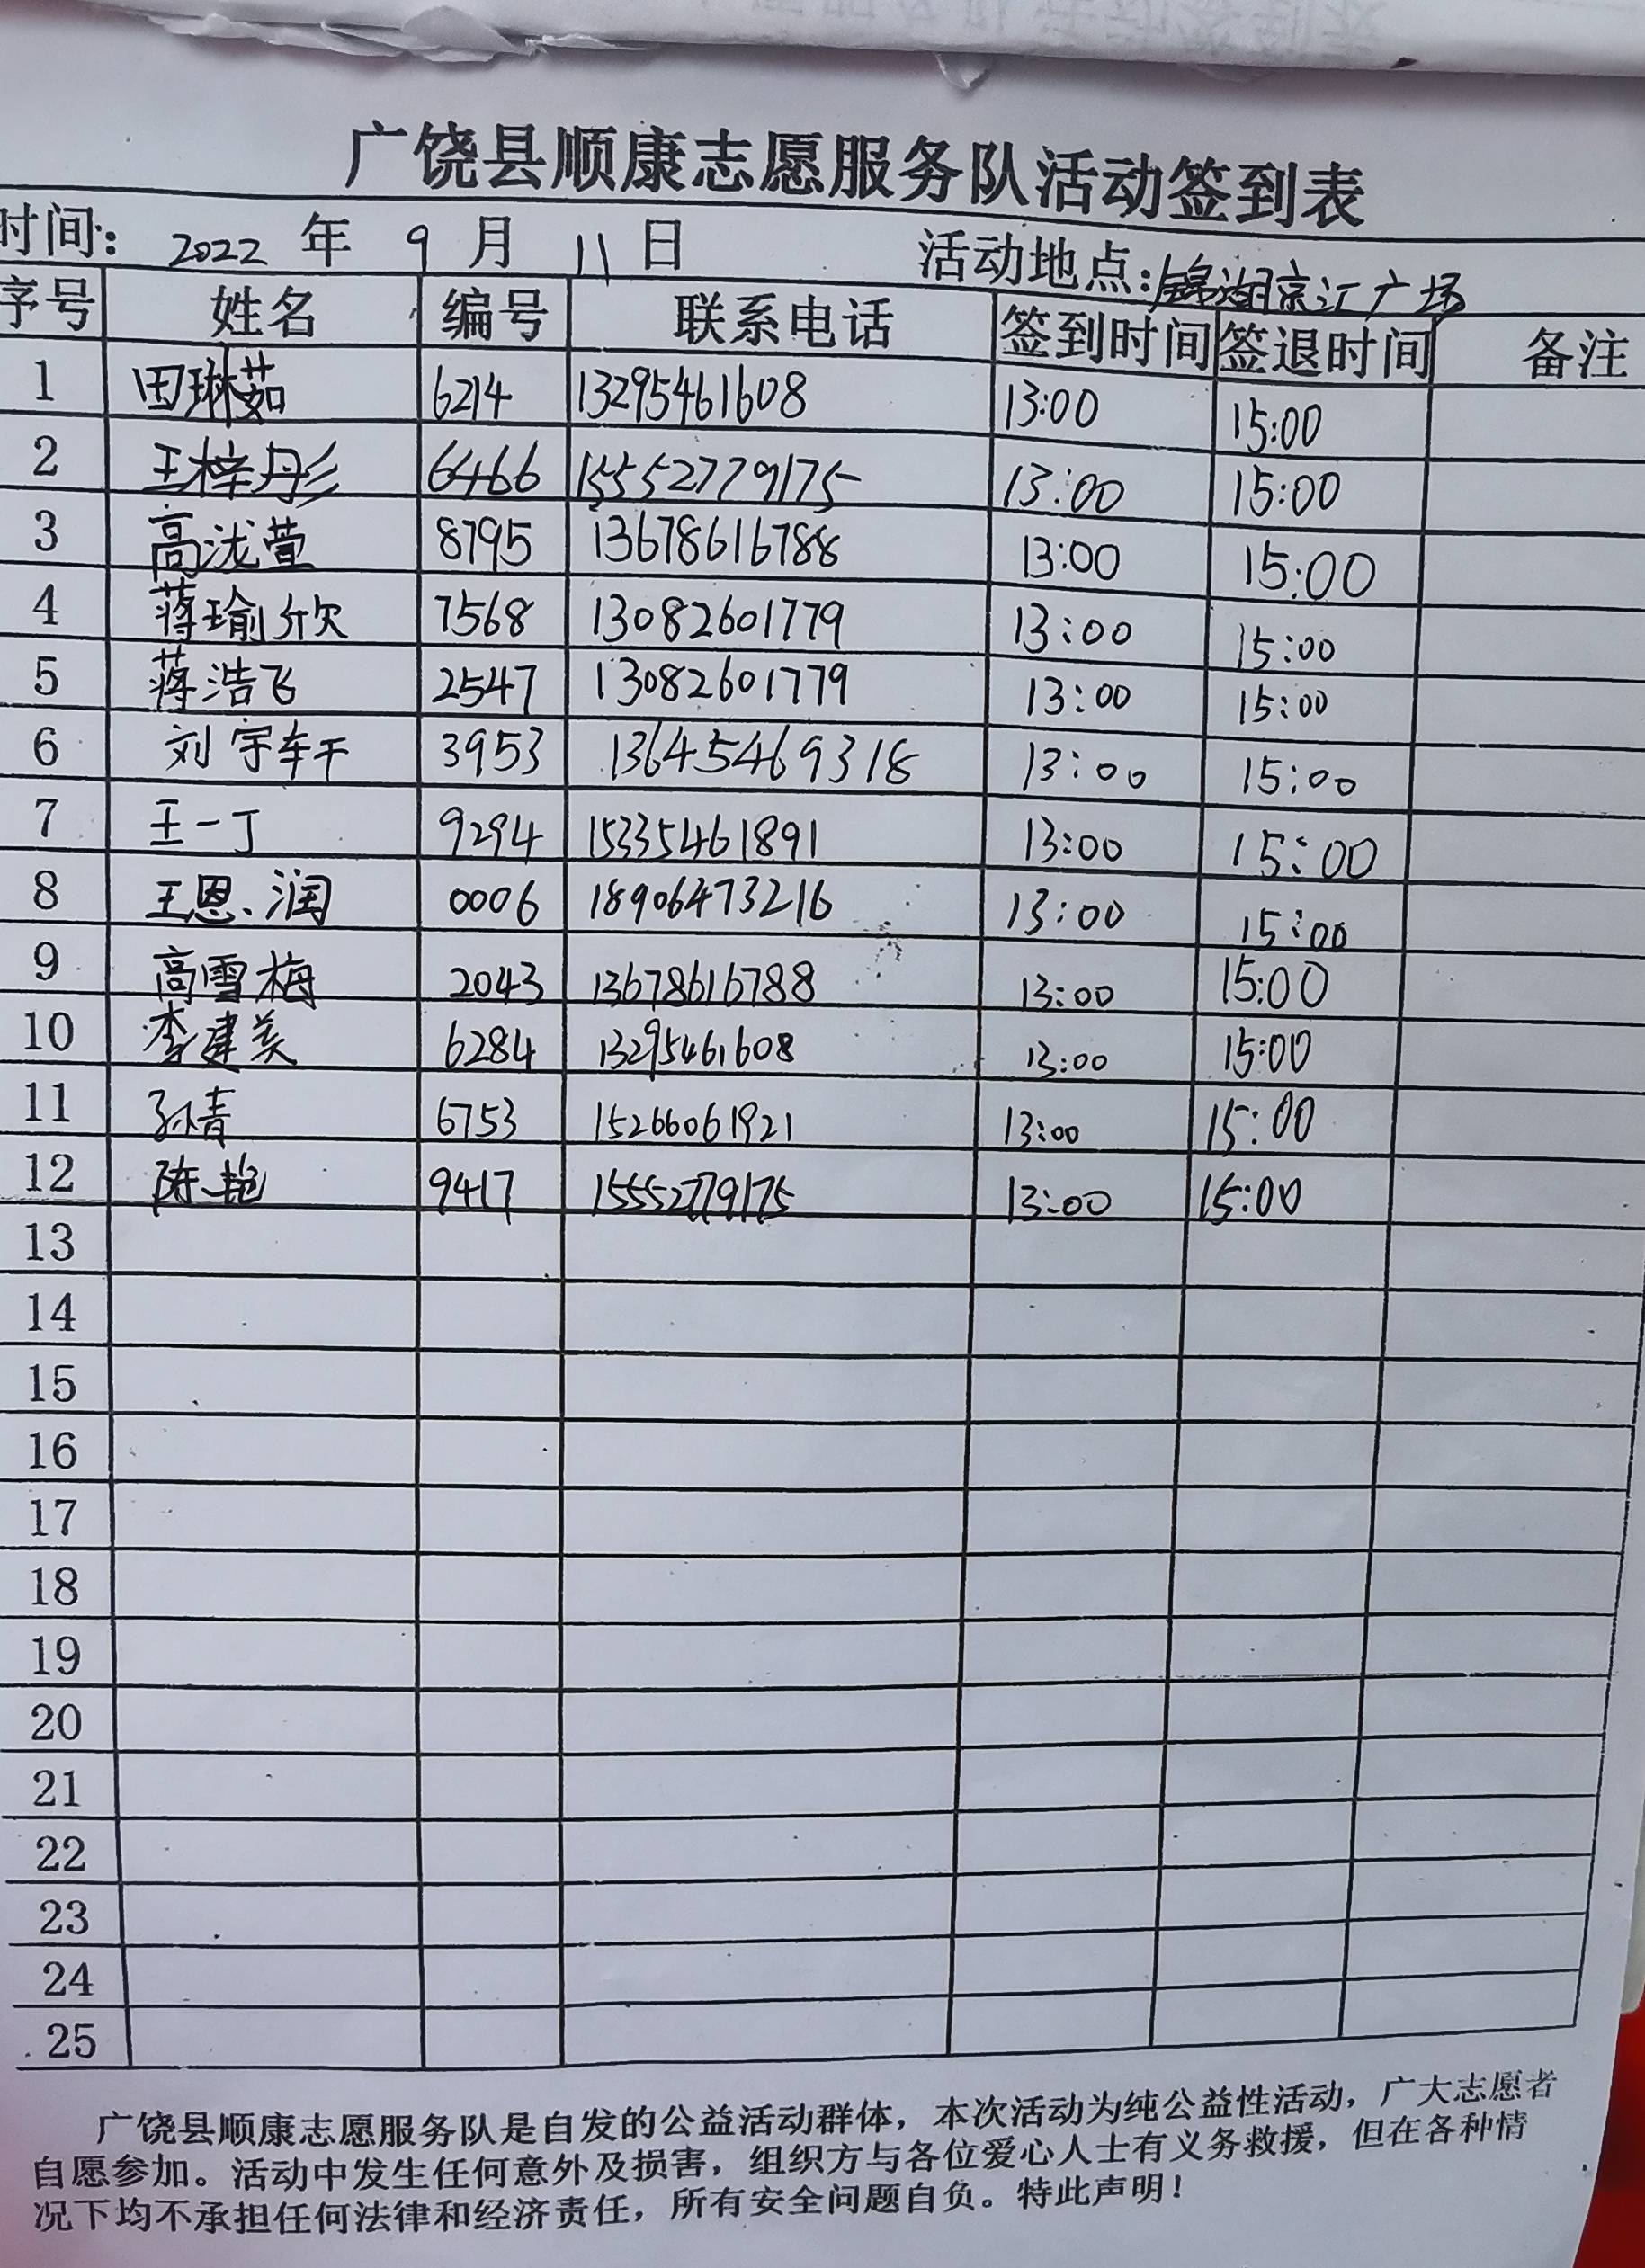 广饶县顺康志愿服务队活动签到表
时间: 2022 年 9 月 11 日 活动地点:锦湖京江广场
序号 姓名 编号 联系电话 签到时间 签退时间 备注
1 田琳茹 6214 13295461608 13:00 15:00
2 王梓彤 6466 15552779175 13:00 15:00
3 高泷萱 8795 13678616788 13:00 15:00
4 蒋瑜欣 7568 13082601779 13:00 15:00
5 蒋浩飞 2547 13082601779 13:00 15:00
6 刘宇轩 3953 13645469318 13:00 15:00
7 王一丁 9294 15335461891 13:00 15:00
8 王恩润 0006 18906473216 13:00 15:00
9 高雪梅 2043 13678616788 13:00 15:00
10 李建美 6284 13295461608 13:00 15:00
11 孙青 6753 15266061921 13:00 15:00
12 陈艳 9417 15552779175 13:00 15:00
13
14
15
16
17
18
19
20
21
22
23
24
25
广饶县顺康志愿服务队是自发的公益活动群体，本次活动为纯公益性活动，广大志愿者
自愿参加。活动中发生任何意外及损害，组织方与各位爱心人士有义务救援，但在各种情
况下均不承担任何法律和经济责任，所有安全问题自负。特此声明！